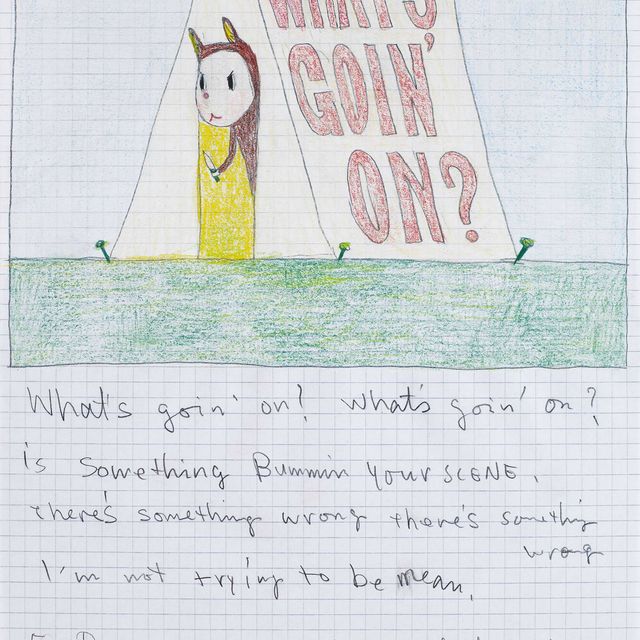 WHAT'S
GOIN'
ON?
What's goin' on? What's goin' on?
is something Bummin your SCENE.
there's something wrong there's something
wrong
I'm not trying to be mean.